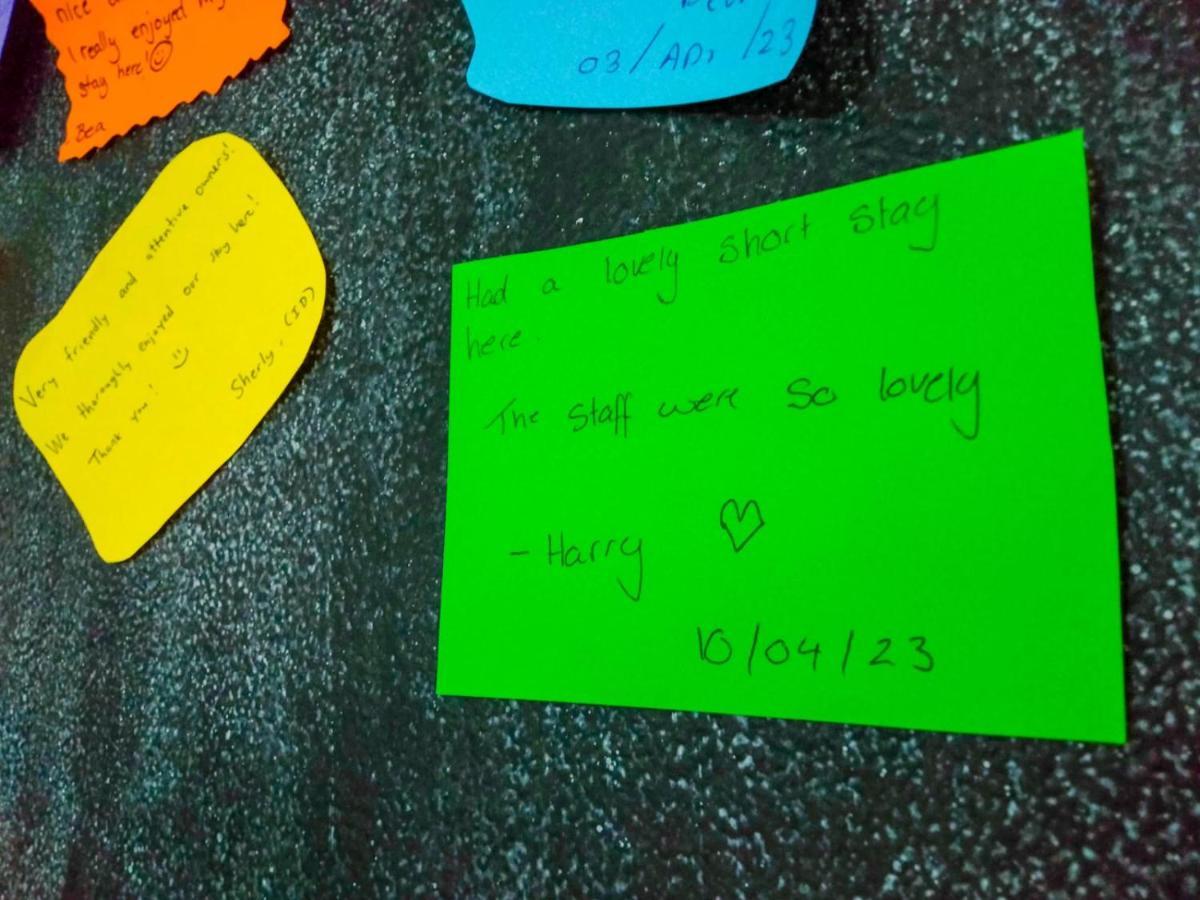 I really enjoyed
stay here!
Bea
03/APr/23
Very friendly and attentive owners!
We thoroughly enjoyed our stay here!
Thank you!
Sherly. (ID)
Had a lovely short stay
here.
The staff were so lovely
- Harry
10/04/23